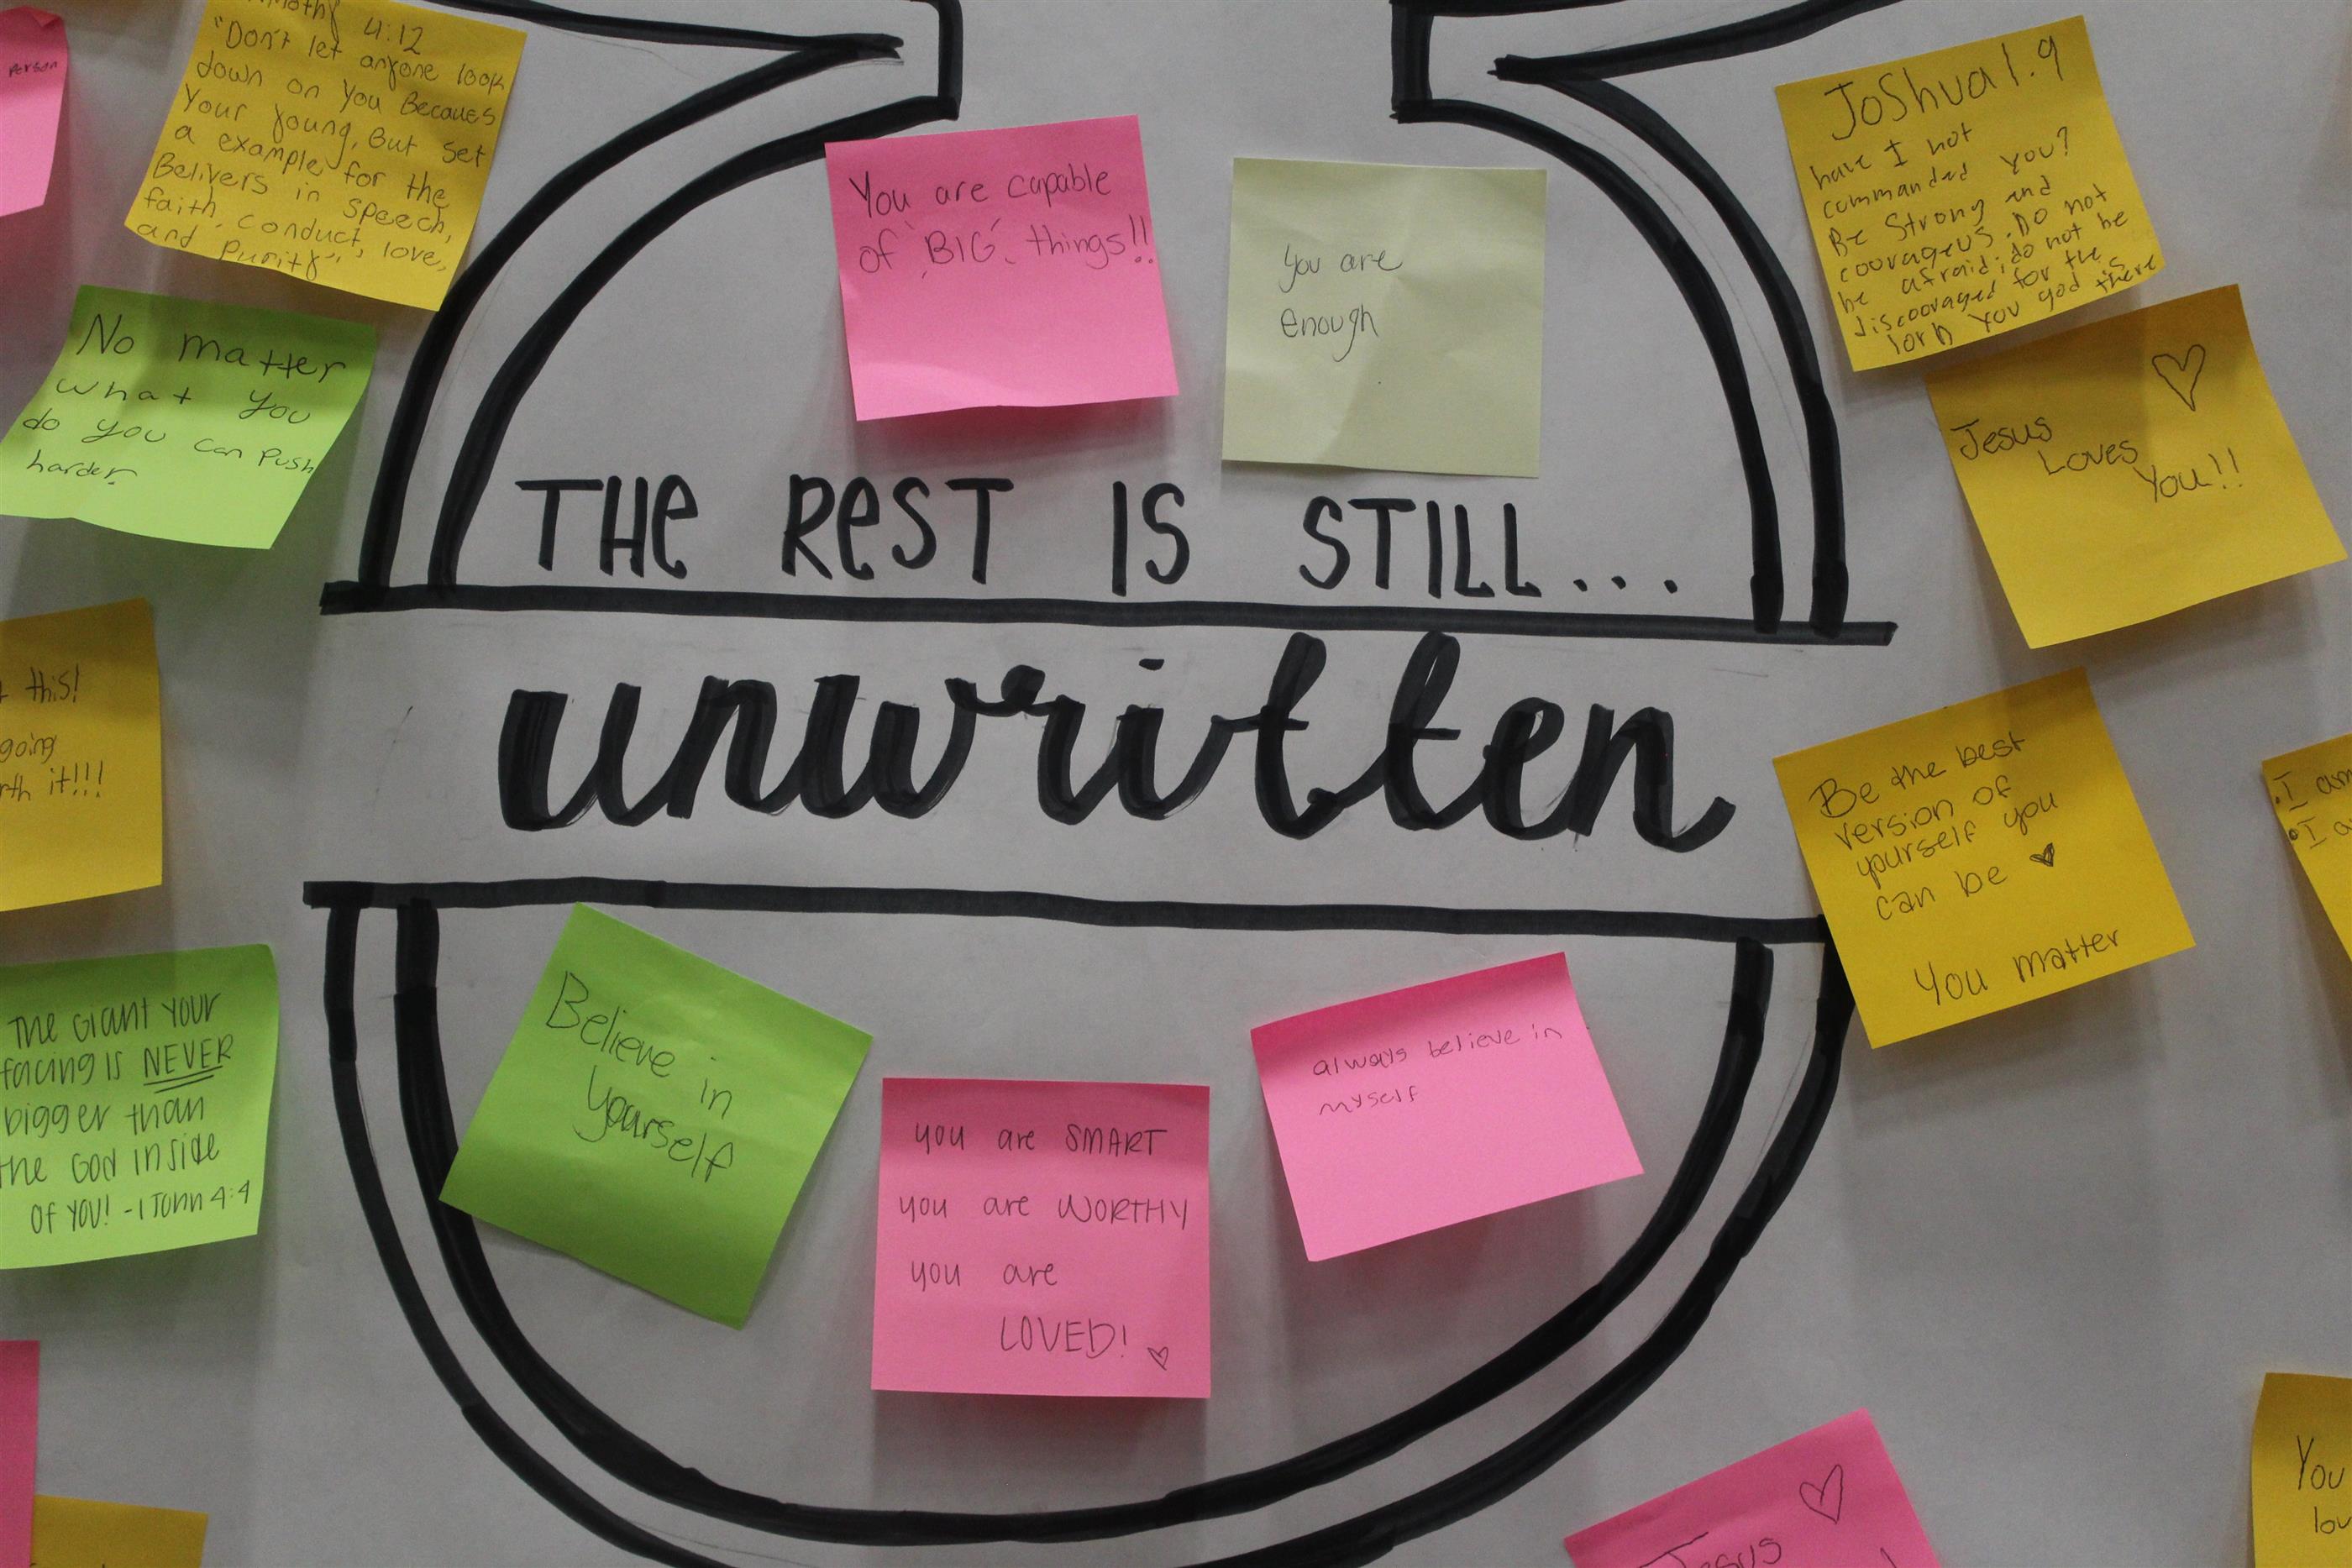 person
4:12
"Don't let anyone look
down on you Becaues
Your young, But set
a example for the
Belivers in speech,
faith, conduct, love,
and Purity"
You are capable
of "BIG" things!!
you are
enough
JoShua 1.9
have I not
commanded you?
Be Strong and
couvageus. Do not
be afraid; do not be
discouvaged for the
lorD you god is there
No matter
what you
do you can Push
harder
Jesus
Loves
You!!
THe ReST IS STILL...
unwritten
this!
going
it!!!
Be the best
version of
yourself you
can be
You matter
I am
I
THE GIANT YOUr
facing is NEVER
bigger than
the God inside
OF YOU! - 1 John 4:4
Believe in
yourself
you are SMART
you are WORTHY
you are
LOVED!
always believe in
myself
Jesus
You